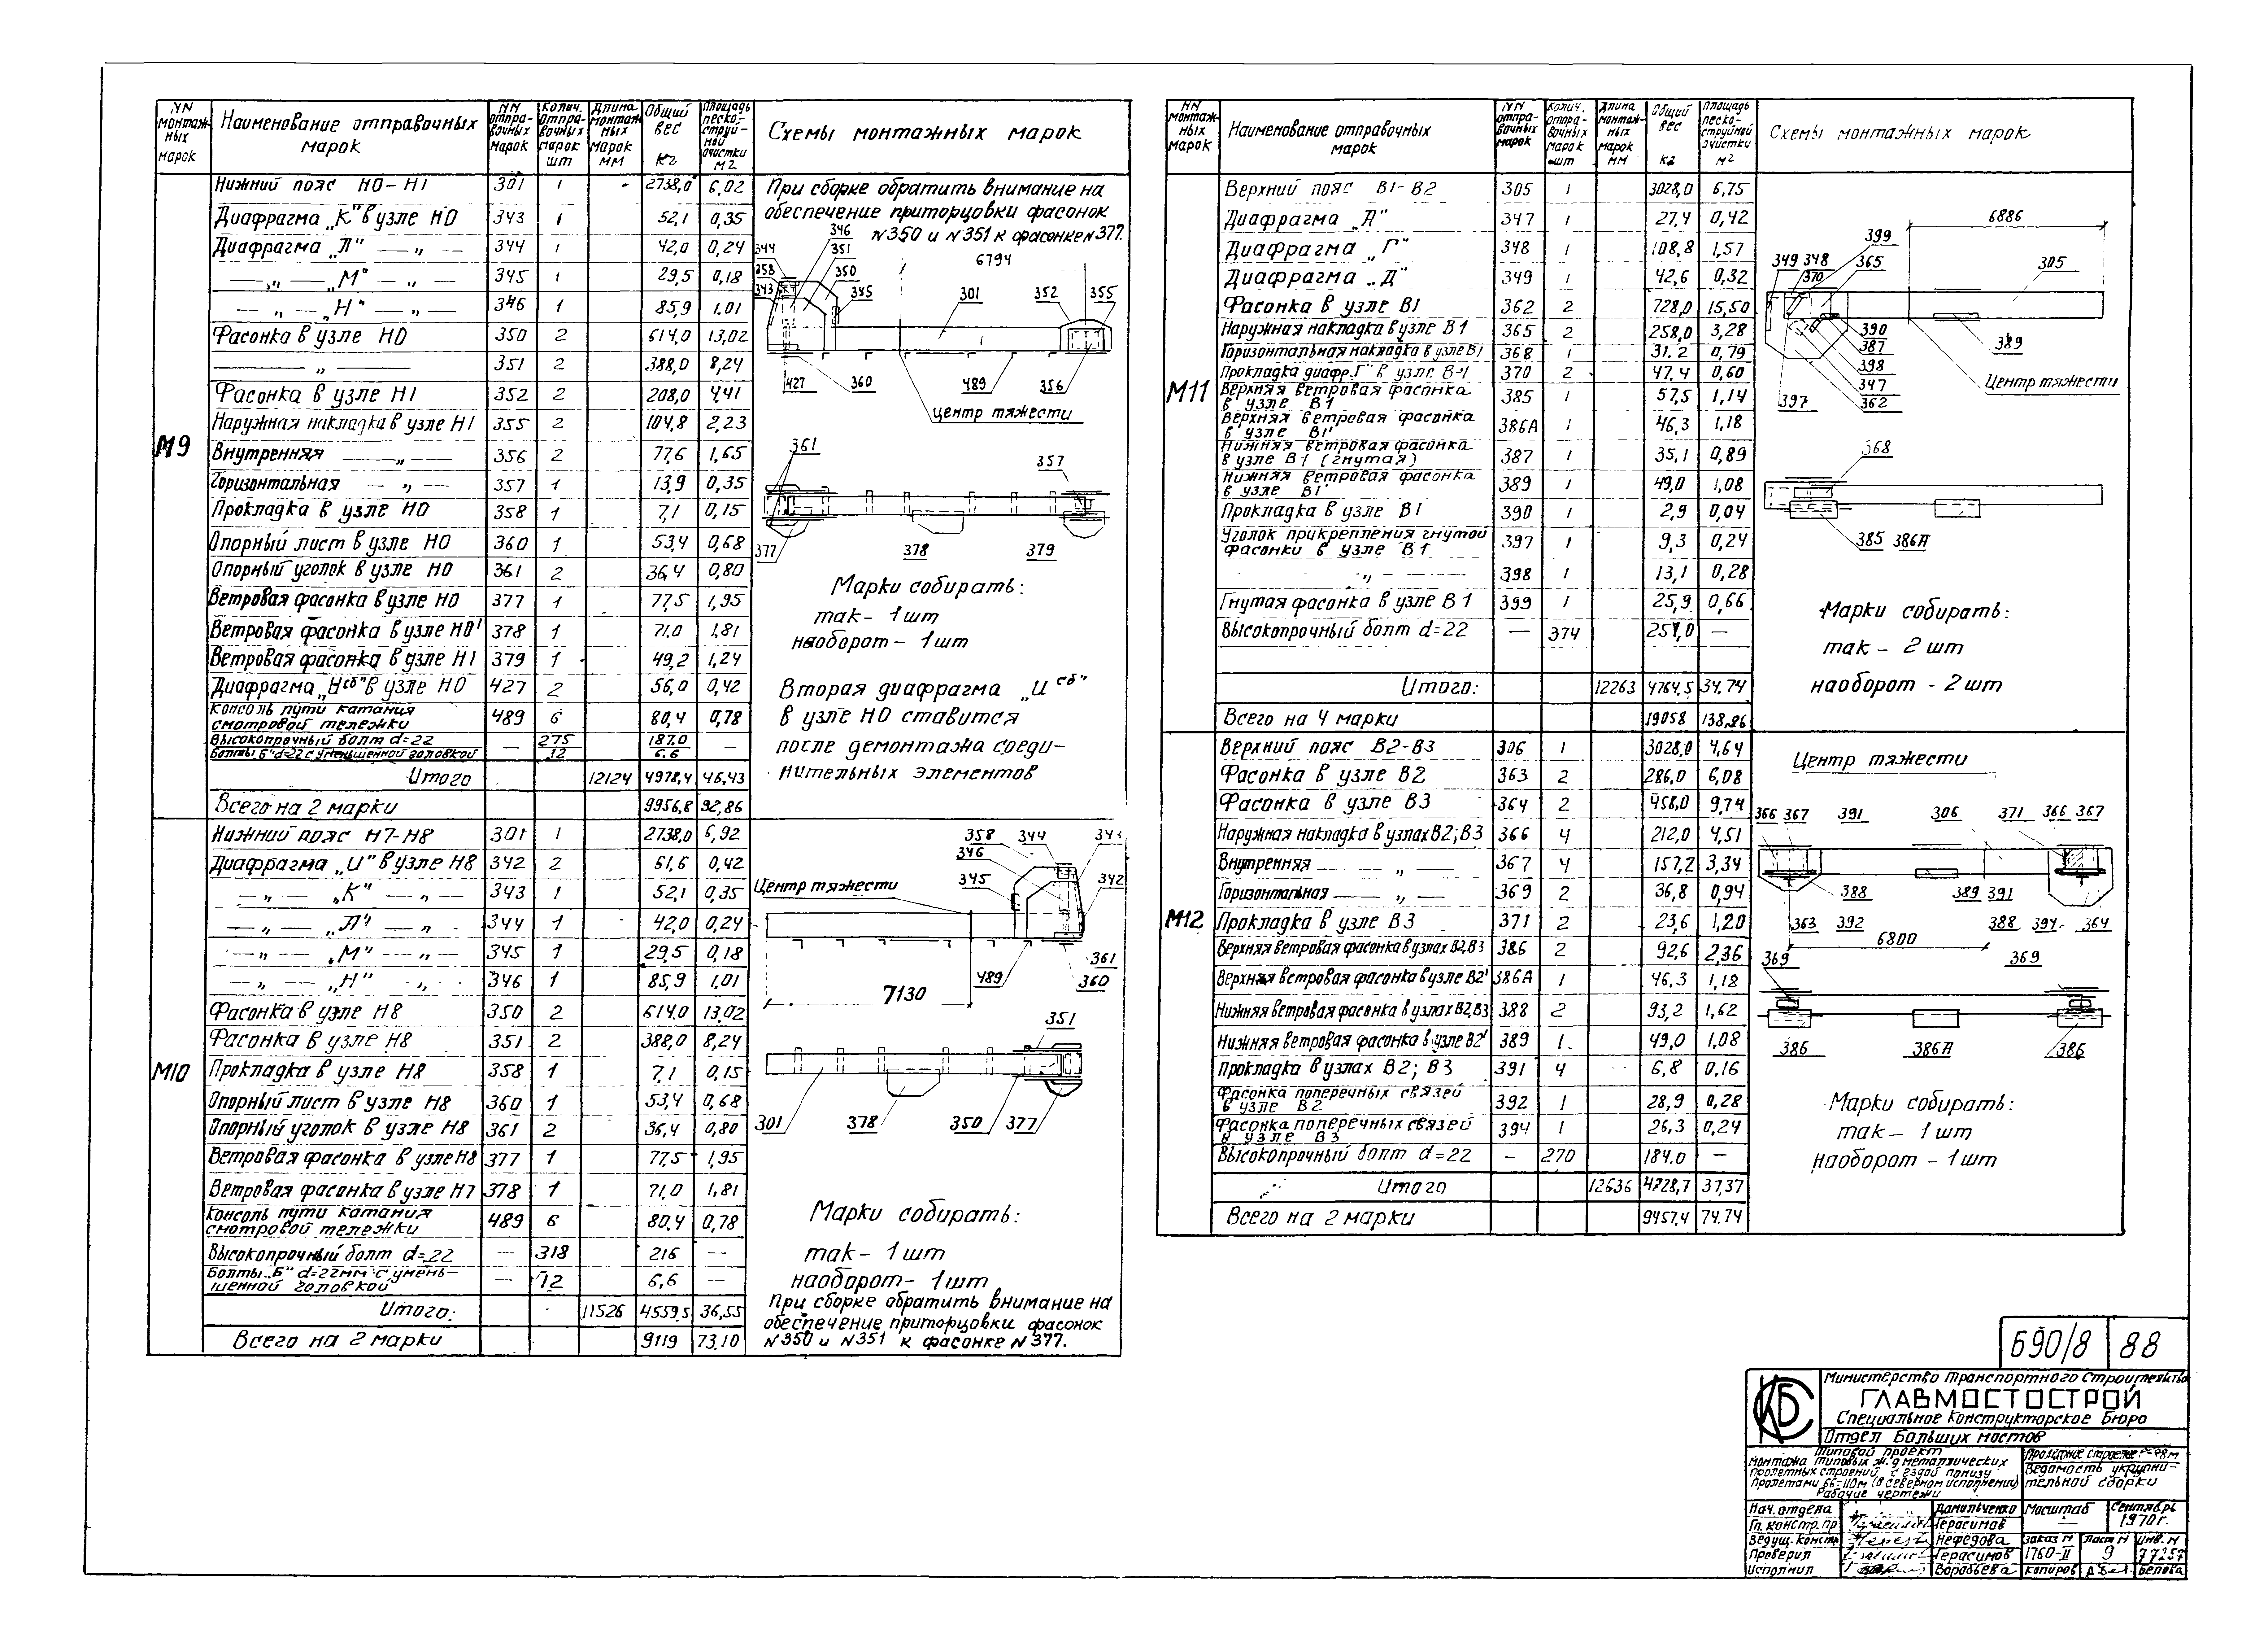 NN монтажных марок | Наименование отправочных марок | NN отправочных марок | Колич. отправочных марок шт | Длина монтажных марок мм | Общий вес кг | Площадь пескоструйной очистки м2 | Схемы монтажных марок
М9
Нижний пояс Н0-Н1 301 1 2738,0 6,02
Диафрагма „К" в узле Н0 343 1 52,1 0,35
Диафрагма „Л" — „ — 344 1 42,0 0,24
— „ — „М" — „ — 345 1 29,5 0,18
— „ — „Н" — „ — 346 1 85,9 1.01
Фасонка в узле Н0 350 2 614,0 13,02
— „ — 351 2 388,0 8,24
Фасонка в узле Н1 352 2 208,0 4,41
Наружная накладка в узле Н1 355 2 104,8 2,23
Внутренняя — „ — 356 2 77,6 1,65
Горизонтальная — „ — 357 1 13,9 0,35
Прокладка в узле Н0 358 1 7,1 0,15
Опорный лист в узле Н0 360 1 53,4 0,68
Опорный уголок в узле Н0 361 2 36,4 0,80
Ветровая фасонка в узле Н0 377 1 77,5 1,95
Ветровая фасонка в узле Н0' 378 1 71.0 1,81
Ветровая фасонка в узле Н1 379 1 49,2 1,24
Диафрагма „Исб" в узле Н0 427 2 56,0 0,42
Консоль пути катания
смотровой тележки 489 6 80,4 0,78
Высокопрочный болт d=22 — 275 187.0 —
Болты „Б" d=22 с уменьшенной головкой 12 6.6
Итого 12124 4978,4 46,43
Всего на 2 марки 9956,8 92,86
При сборке обратить внимание на
обеспечение приторцовки фасонок
N350 и N351 к фасонке N377.
346
344 351
358 350
343 345
6794
301 352 355
427 360 489 356
центр тяжести
361 357
377 378 379
Марки собирать:
так - 1 шт
наоборот - 1 шт
Вторая диафрагма „Исб"
в узле Н0 ставится
после демонтажа соеди-
нительных элементов
М10
Нижний пояс Н7-Н8 301 1 2738,0 6,92
Диафрагма „И" в узле Н8 342 2 61,6 0,42
— „ — „К" — „ — 343 1 52,1 0,35
— „ — „Л" — „ 344 1 42,0 0,24
— „ — „М" — „ — 345 1 29,5 0,18
— „ — „Н" „ 346 1 85,9 1,01
Фасонка в узле Н8 350 2 614.0 13,02
Фасонка в узле Н8 351 2 388,0 8,24
Прокладка в узле Н8 358 1 7,1 0,15
Опорный лист в узле Н8 360 1 53,4 0,68
Опорный уголок в узле Н8 361 2 36,4 0,80
Ветровая фасонка в узле Н8 377 1 77,5 1,95
Ветровая фасонка в узле Н7 378 1 71,0 1,81
Консоль пути катания
смотровой тележки 489 6 80,4 0,78
Высокопрочный болт d=22 — 318 216 —
Болты „Б" d=22мм с умень-
шенной головкой — 12 6,6 —
Итого: 11526 4559,5 36,55
Всего на 2 марки 9119 73.10
358 344 343
346
345 342
Центр тяжести
489 361
360
7130
351
301 378 350 377
Марки собирать:
так - 1 шт
наоборот - 1 шт
При сборке обратить внимание на
обеспечение приторцовки фасонок
N350 и N351 к фасонке N377.
NN монтажных марок | Наименование отправочных марок | NN отправочных марок | Колич. отправочных марок шт | Длина монтажных марок мм | Общий вес кг | Площадь пескоструйной очистки м2 | Схемы монтажных марок
М11
Верхний пояс В1-В2 305 1 3028,0 6,75
Диафрагма „А" 347 1 27,4 0,42
Диафрагма „Г" 348 1 108,8 1,57
Диафрагма „Д" 349 1 42,6 0,32
Фасонка в узле В1 362 2 728,0 15,50
Наружная накладка в узле В1 365 2 258,0 3,28
Горизонтальная накладка в узле В1 368 1 31.2 0,79
Прокладка диафр. „Г" в узле В-1 370 2 47,4 0,60
Верхняя ветровая фасонка
в узле В1 385 1 57,5 1,14
Верхняя ветровая фасонка
в узле В1' 386А 1 46,3 1,18
Нижняя ветровая фасонка
в узле В1 (гнутая) 387 1 35,1 0,89
Нижняя ветровая фасонка
в узле В1' 389 1 49,0 1,08
Прокладка в узле В1 390 1 2,9 0,04
Уголок прикрепления гнутой
фасонки в узле В1 397 1 9,3 0,24
— „ — 398 1 13,1 0,28
Гнутая фасонка в узле В1 399 1 25,9 0,66
Высокопрочный болт d=22 — 374 254,0 —
Итого: 12263 4764,5 34.74
Всего на 4 марки 19058 138.96
6886
399
349 348 365 305
370
390
387 389
398
347
397 362
Центр тяжести
368
385 386А
Марки собирать:
так - 2 шт
наоборот - 2 шт
М12
Верхний пояс В2-В3 306 1 3028,0 4,64
Фасонка в узле В2 363 2 286,0 6,08
Фасонка в узле В3 364 2 458,0 9,74
Наружная накладка в узлах В2; В3 366 4 212,0 4,51
Внутренняя — „ — 367 4 157,2 3,34
Горизонтальная — „ — 369 2 36,8 0,94
Прокладка в узле В3 371 2 23,6 1,20
Верхняя ветровая фасонка в узлах В2,В3 386 2 92,6 2,36
Верхняя ветровая фасонка в узле В2' 386А 1 46.3 1,18
Нижняя ветровая фасонка в узлах В2,В3 388 2 93,2 1,62
Нижняя ветровая фасонка в узле В2' 389 1 49,0 1,08
Прокладка в узлах В2; В3 391 4 6,8 0,16
Фасонка поперечных связей
в узле В2 392 1 28,9 0,28
Фасонка поперечных связей
в узле В3 394 1 26,3 0,24
Высокопрочный болт d=22 — 270 184.0 —
Итого 12636 4728,7 37,37
Всего на 2 марки 9457,4 74.74
Центр тяжести
366 367 391 306 371 366 367
388 389 391
363 392 388 394 364
6800
369 369
386 386А 386
Марки собирать:
так - 1 шт
наоборот - 1 шт
690/8 88
СКБ
Министерство транспортного строительства
ГЛАВМОСТОСТРОЙ
Специальное Конструкторское Бюро
Отдел Больших мостов
Типовой проект
монтажа типовых ж.д металлических
пролетных строений с ездой понизу
пролетами 66-110м (в северном исполнении)
Рабочие чертежи
Ведомость укрупни-
тельной сборки
Нач. отдела Данильченко Масштаб — Сентябрь 1970г.
Гл. констр. пр Герасимов
Ведущ. констр Нефедова Заказ N Лист N Инв. N
Проверил Герасимов 1760-II 9 77257
Исполнил Воробьева Копиров Белова